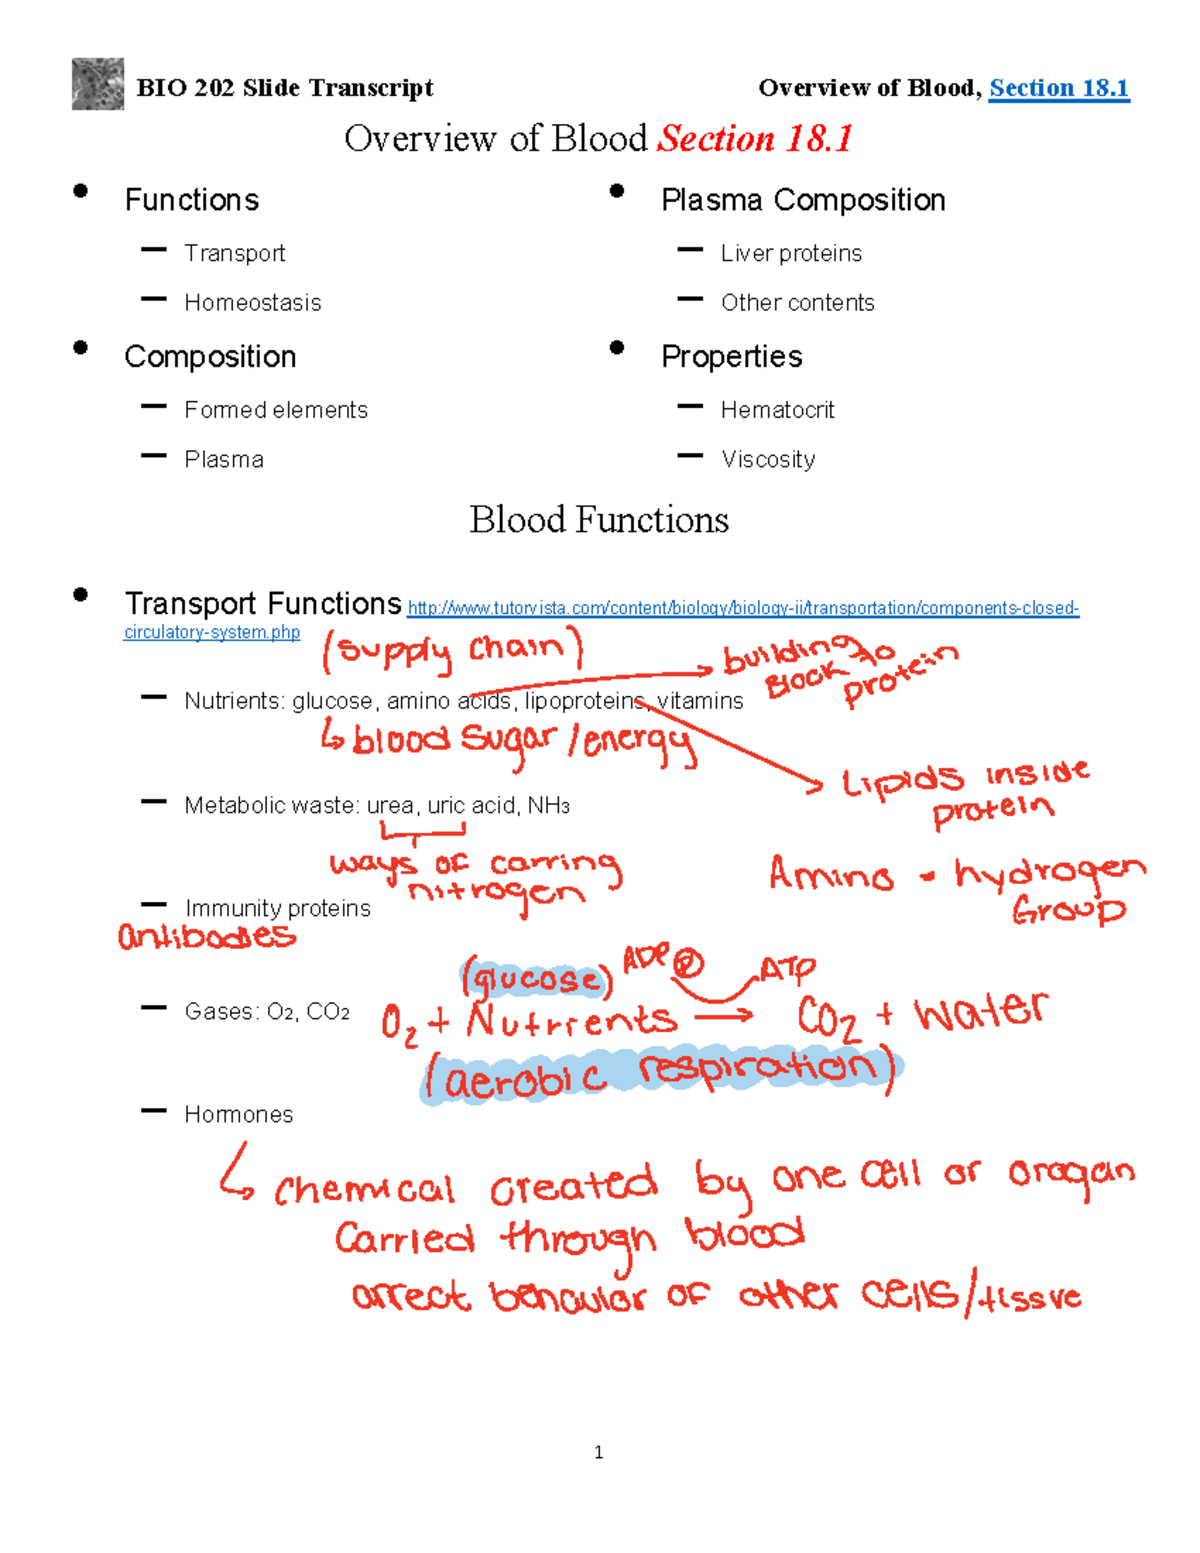 BIO 202 Slide Transcript Overview of Blood, Section 18.1
Overview of Blood Section 18.1
• Functions
– Transport
– Homeostasis
• Composition
– Formed elements
– Plasma
• Plasma Composition
– Liver proteins
– Other contents
• Properties
– Hematocrit
– Viscosity
Blood Functions
• Transport Functions http://www.tutorvista.com/content/biology/biology-ii/transportation/components-closed-
circulatory-system.php
(Supply chain)
building
Block to
protein
– Nutrients: glucose, amino acids, lipoproteins, vitamins
↳ blood sugar/energy
Lipids inside
protein
– Metabolic waste: urea, uric acid, NH3
ways of carring
nitrogen
Amino - hydrogen
Group
– Immunity proteins
antibodies
(glucose) ADP P ATP
– Gases: O2, CO2
O2 + Nutrients → CO2 + water
(aerobic respiration)
– Hormones
↳ chemical created by one cell or orogan
carried through blood
affect behavior of other cells/tissue
1